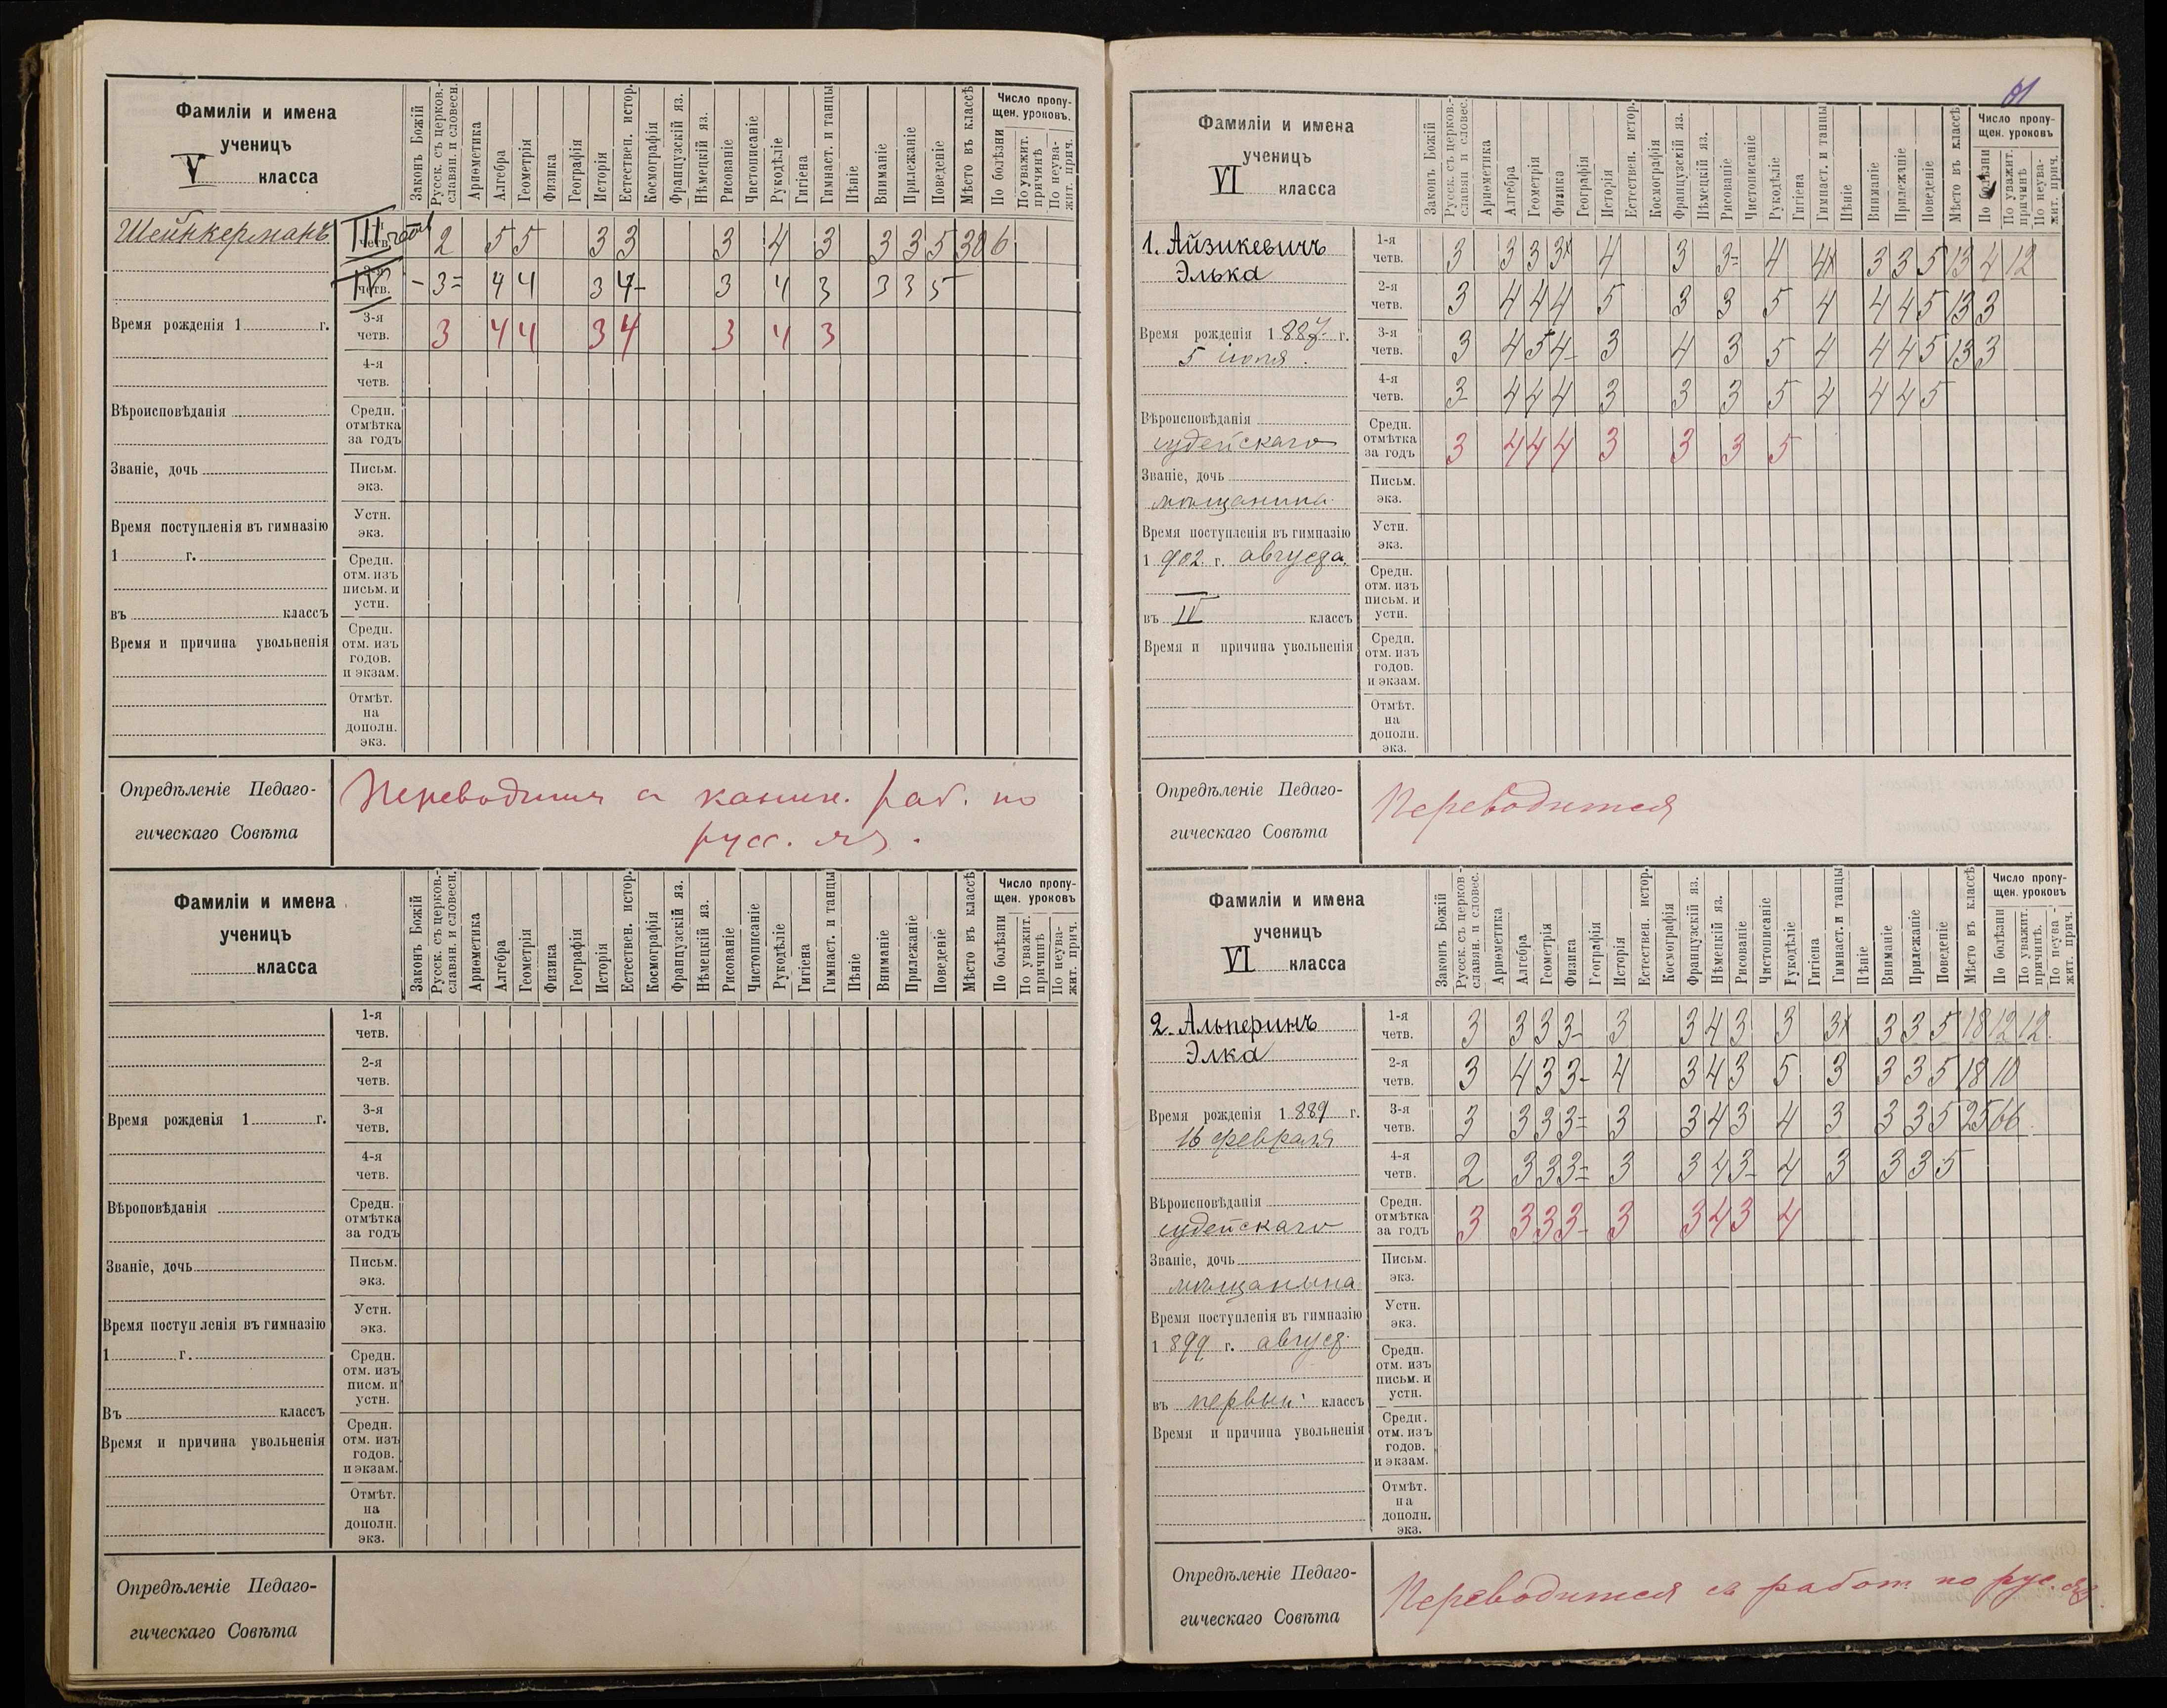 Фамиліи и имена
ученицъ
V класса
Законъ Божій
Русск. съ церков.-славян. и словесн.
Ариѳметика
Алгебра
Геометрія
Физика
Географія
Исторія
Естествен. истор.
Космографія
Французскій яз.
Нѣмецкій яз.
Рисованіе
Чистописаніе
Рукодѣліе
Гигіена
Гимнаст. и танцы
Пѣніе
Вниманіе
Прилежаніе
Поведеніе
Мѣсто въ классѣ
Число пропущен. уроковъ.
По болѣзни
По уважит. причинѣ
По неуважит. прич.
Шейнкерманъ
III четв. 2 5 5 3 3 3 4 3 3 3 5 30 6
IV четв. – 3= 4 4 3 4– 3 4 3 3 3 5
Время рожденія 1 г.
3-я четв. 3 4 4 3 4 3 4 3
4-я четв.
Вѣроисповѣданія
Средн. отмѣтка за годъ
Званіе, дочь
Письм. экз.
Время поступленія въ гимназію
1 г.
Устн. экз.
Средн. отм. изъ письм. и устн.
въ классъ
Время и причина увольненія
Средн. отм. изъ годов. и экзам.
Отмѣт. на дополн. экз.
Опредѣленіе Педаго-
гическаго Совѣта
Переводится съ каник. раб. по
русс. яз.
Фамиліи и имена
ученицъ
класса
Законъ Божій
Русск. съ церков.-славян. и словесн.
Ариѳметика
Алгебра
Геометрія
Физика
Географія
Исторія
Естествен. истор.
Космографія
Французскій яз.
Нѣмецкій яз.
Рисованіе
Чистописаніе
Рукодѣліе
Гигіена
Гимнаст. и танцы
Пѣніе
Вниманіе
Прилежаніе
Поведеніе
Мѣсто въ классѣ
Число пропущен. уроковъ
По болѣзни
По уважит. причинѣ
По неуважит. прич.
1-я четв.
2-я четв.
Время рожденія 1 г.
3-я четв.
4-я четв.
Вѣроповѣданія
Средн. отмѣтка за годъ
Званіе, дочь
Письм. экз.
Время поступленія въ гимназію
1 г.
Устн. экз.
Средн. отм. изъ писм. и устн.
Въ классъ
Время и причина увольненія
Средн. отм. изъ годов. и экзам.
Отмѣт. на дополн. экз.
Опредѣленіе Педаго-
гическаго Совѣта
Фамиліи и имена
ученицъ
VI класса
Законъ Божій
Русск. съ церков.-славян и словес.
Ариѳметика
Алгебра
Геометрія
Физика
Географія
Исторія
Естествен. истор.
Космографія
Французскій яз.
Нѣмецкій яз.
Рисованіе
Чистописаніе
Рукодѣліе
Гигіена
Гимнаст. и танцы
Пѣніе
Вниманіе
Прилежаніе
Поведеніе
Мѣсто въ классѣ
Число пропущен. уроковъ
По болѣзни
По уважит. причинѣ
По неуважит. прич.
1. Айзикевичъ
Элька
1-я четв. 3 3 3 3 4 3 3= 4 4 3 3 5 13 4 12
2-я четв. 3 4 4 4 5 3 3 5 4 4 4 5 13 3
Время рожденія 1887 г.
5 іюля.
3-я четв. 3 4 5 4– 3 4 3 5 4 4 4 5 13 3
4-я четв. 3 4 4 4 3 3 3 5 4 4 4 5
Вѣроисповѣданія
іудейскаго
Средн. отмѣтка за годъ 3 4 4 4 3 3 3 5
Званіе, дочь
мѣщанина
Письм. экз.
Время поступленія въ гимназію
1902 г. августа.
Устн. экз.
Средн. отм. изъ письм. и устн.
въ IV классъ
Время и причина увольненія
Средн. отм. изъ годов. и экзам.
Отмѣт. на дополн. экз.
Опредѣленіе Педаго-
гическаго Совѣта
Переводится
Фамиліи и имена
ученицъ
VI класса
Законъ Божій
Русск. съ церков-славян. и словес.
Ариѳметика
Алгебра
Геометрія
Физика
Географія
Исторія
Естествен. истор.
Космографія
Французскій яз.
Нѣмецкій яз.
Рисованіе
Чистописаніе
Рукодѣліе
Гигіена
Гимнаст. и танцы
Пѣніе
Вниманіе
Прилежаніе
Поведеніе
Мѣсто въ классѣ
Число пропущен. уроковъ
По болѣзни
По уважит. причинѣ.
По неуважит. прич.
2. Альперинъ
Элка
1-я четв. 3 3 3 3– 3 3 4 3 3 3 3 3 5 18 12 12.
2-я четв. 3 4 3 3– 4 3 4 3 5 3 3 3 5 18 10
Время рожденія 1889 г.
16 февраля
3-я четв. 3 3 3 3= 3 3 4 3 4 3 3 3 5 25 66
4-я четв. 2 3 3 3= 3 3 4 3– 4 3 3 3 5
Вѣроисповѣданія
іудейскаго
Средн. отмѣтка за годъ 3 3 3 3– 3 3 4 3 4
Званіе, дочь
мѣщанина
Письм. экз.
Время поступленія въ гимназію
1899 г. август.
Устн. экз.
Средн. отм. изъ письм. и устн.
въ первый классъ
Время и причина увольненія
Средн. отм. изъ годов. и экзам.
Отмѣт. на дополн. экз.
Опредѣленіе Педаго-
гическаго Совѣта
Переводится съ работ. по рус. яз.